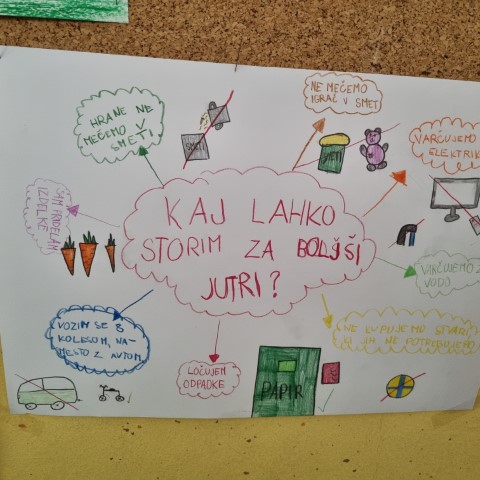 HRANE NE
MEČEMO V
SMETI
NE MEČEMO
IGRAČ V SMET
VARČUJEMO
ELEKTRIK
SMETI
KAJ LAHKO
STORIM ZA BOLJŠI
JUTRI?
SAM PRIDELAM
IZDELKE
VARČUJEMO Z
VODO
VOZIM SE S
KOLESOM, NA-
MESTO Z AVTOM.
NE KUPUJEMO STVARI,
KI JIH NE POTREBUJEMO
LOČUJEM
ODPADKE
PAPIR